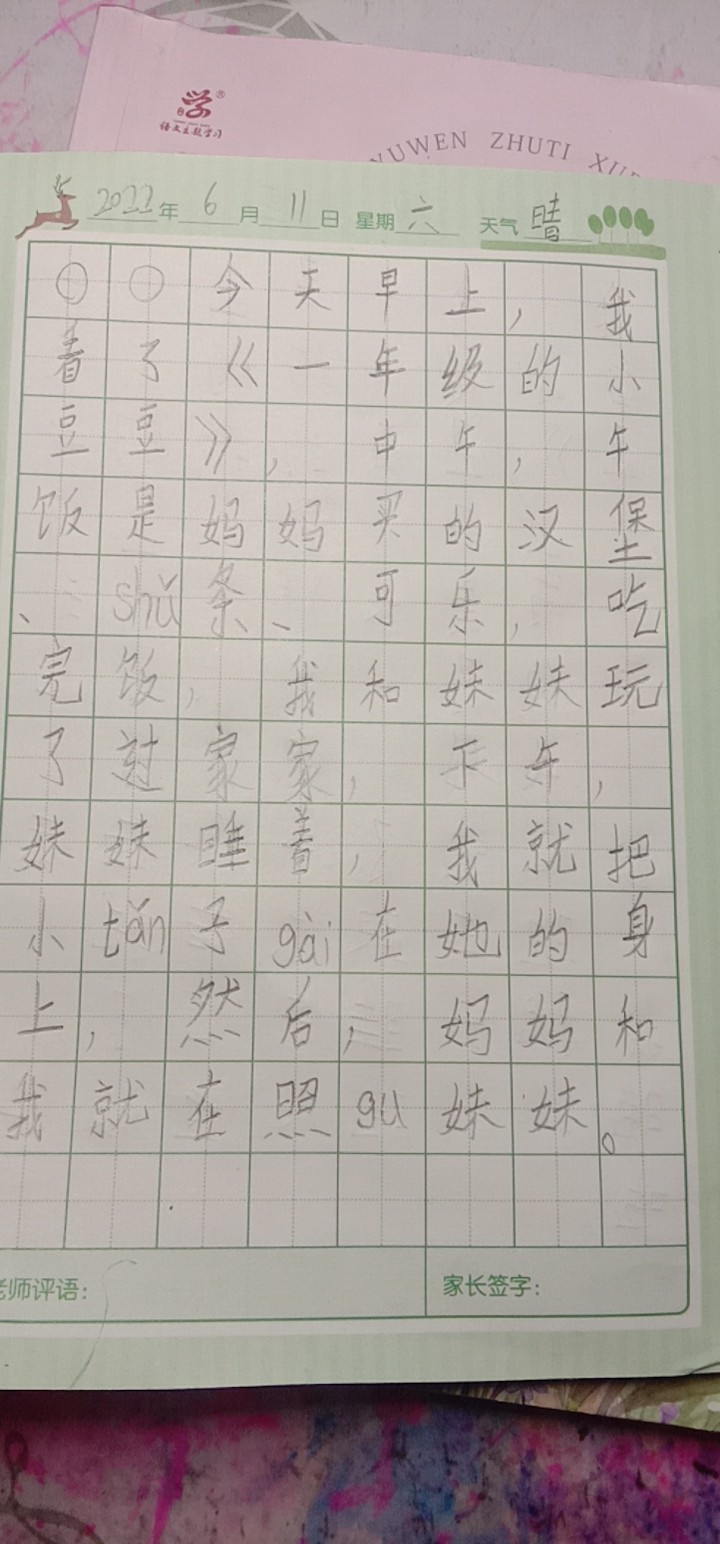 学®
语文主题学习
YUWEN ZHUTI XU
2022年6月11日 星期六 天气晴
〇〇今天早上，我
看了《一年级的小
豆豆》，中午，午
饭是妈妈买的汉堡
、shǔ条、可乐，吃
完饭，我和妹妹玩
了过家家，下午，
妹妹睡着，我就把
小tǎn子gài在她的身
上，然后，妈妈和
我就在照gu妹妹。
老师评语：
家长签字：